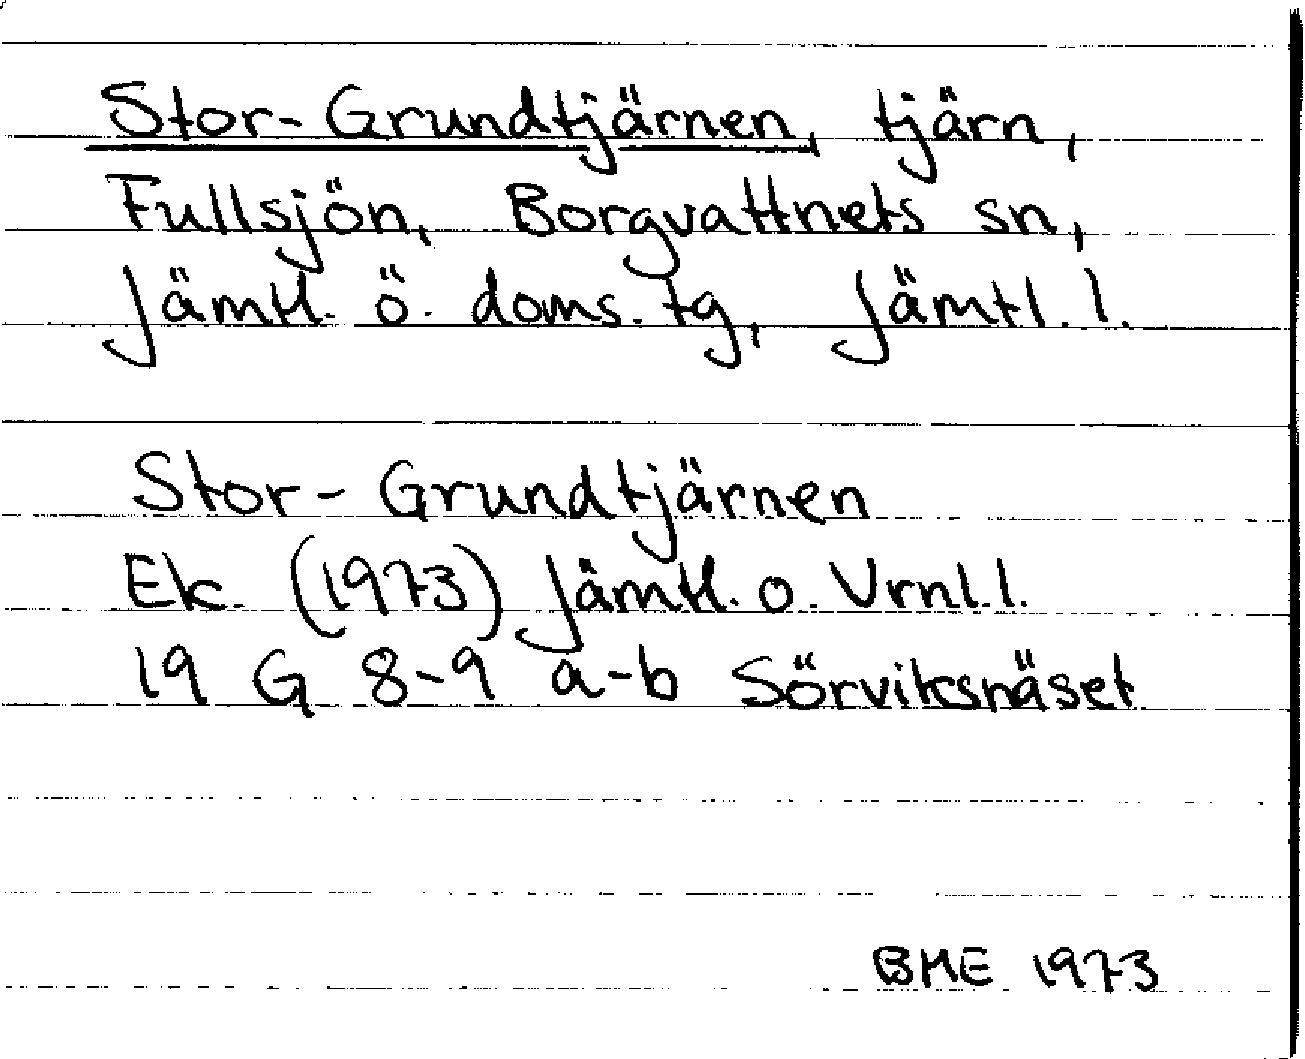 Stor-Grundtjärnen, tjärn,
Fullsjön, Borgvattnets sn,
Jämtl. ö. doms. tg, Jämtl. l.
Stor-Grundtjärnen
Ek. (1973) Jämtl. o. Vrnl. l.
19 G 8-9 a-b Sörviksnäset
BME 1973